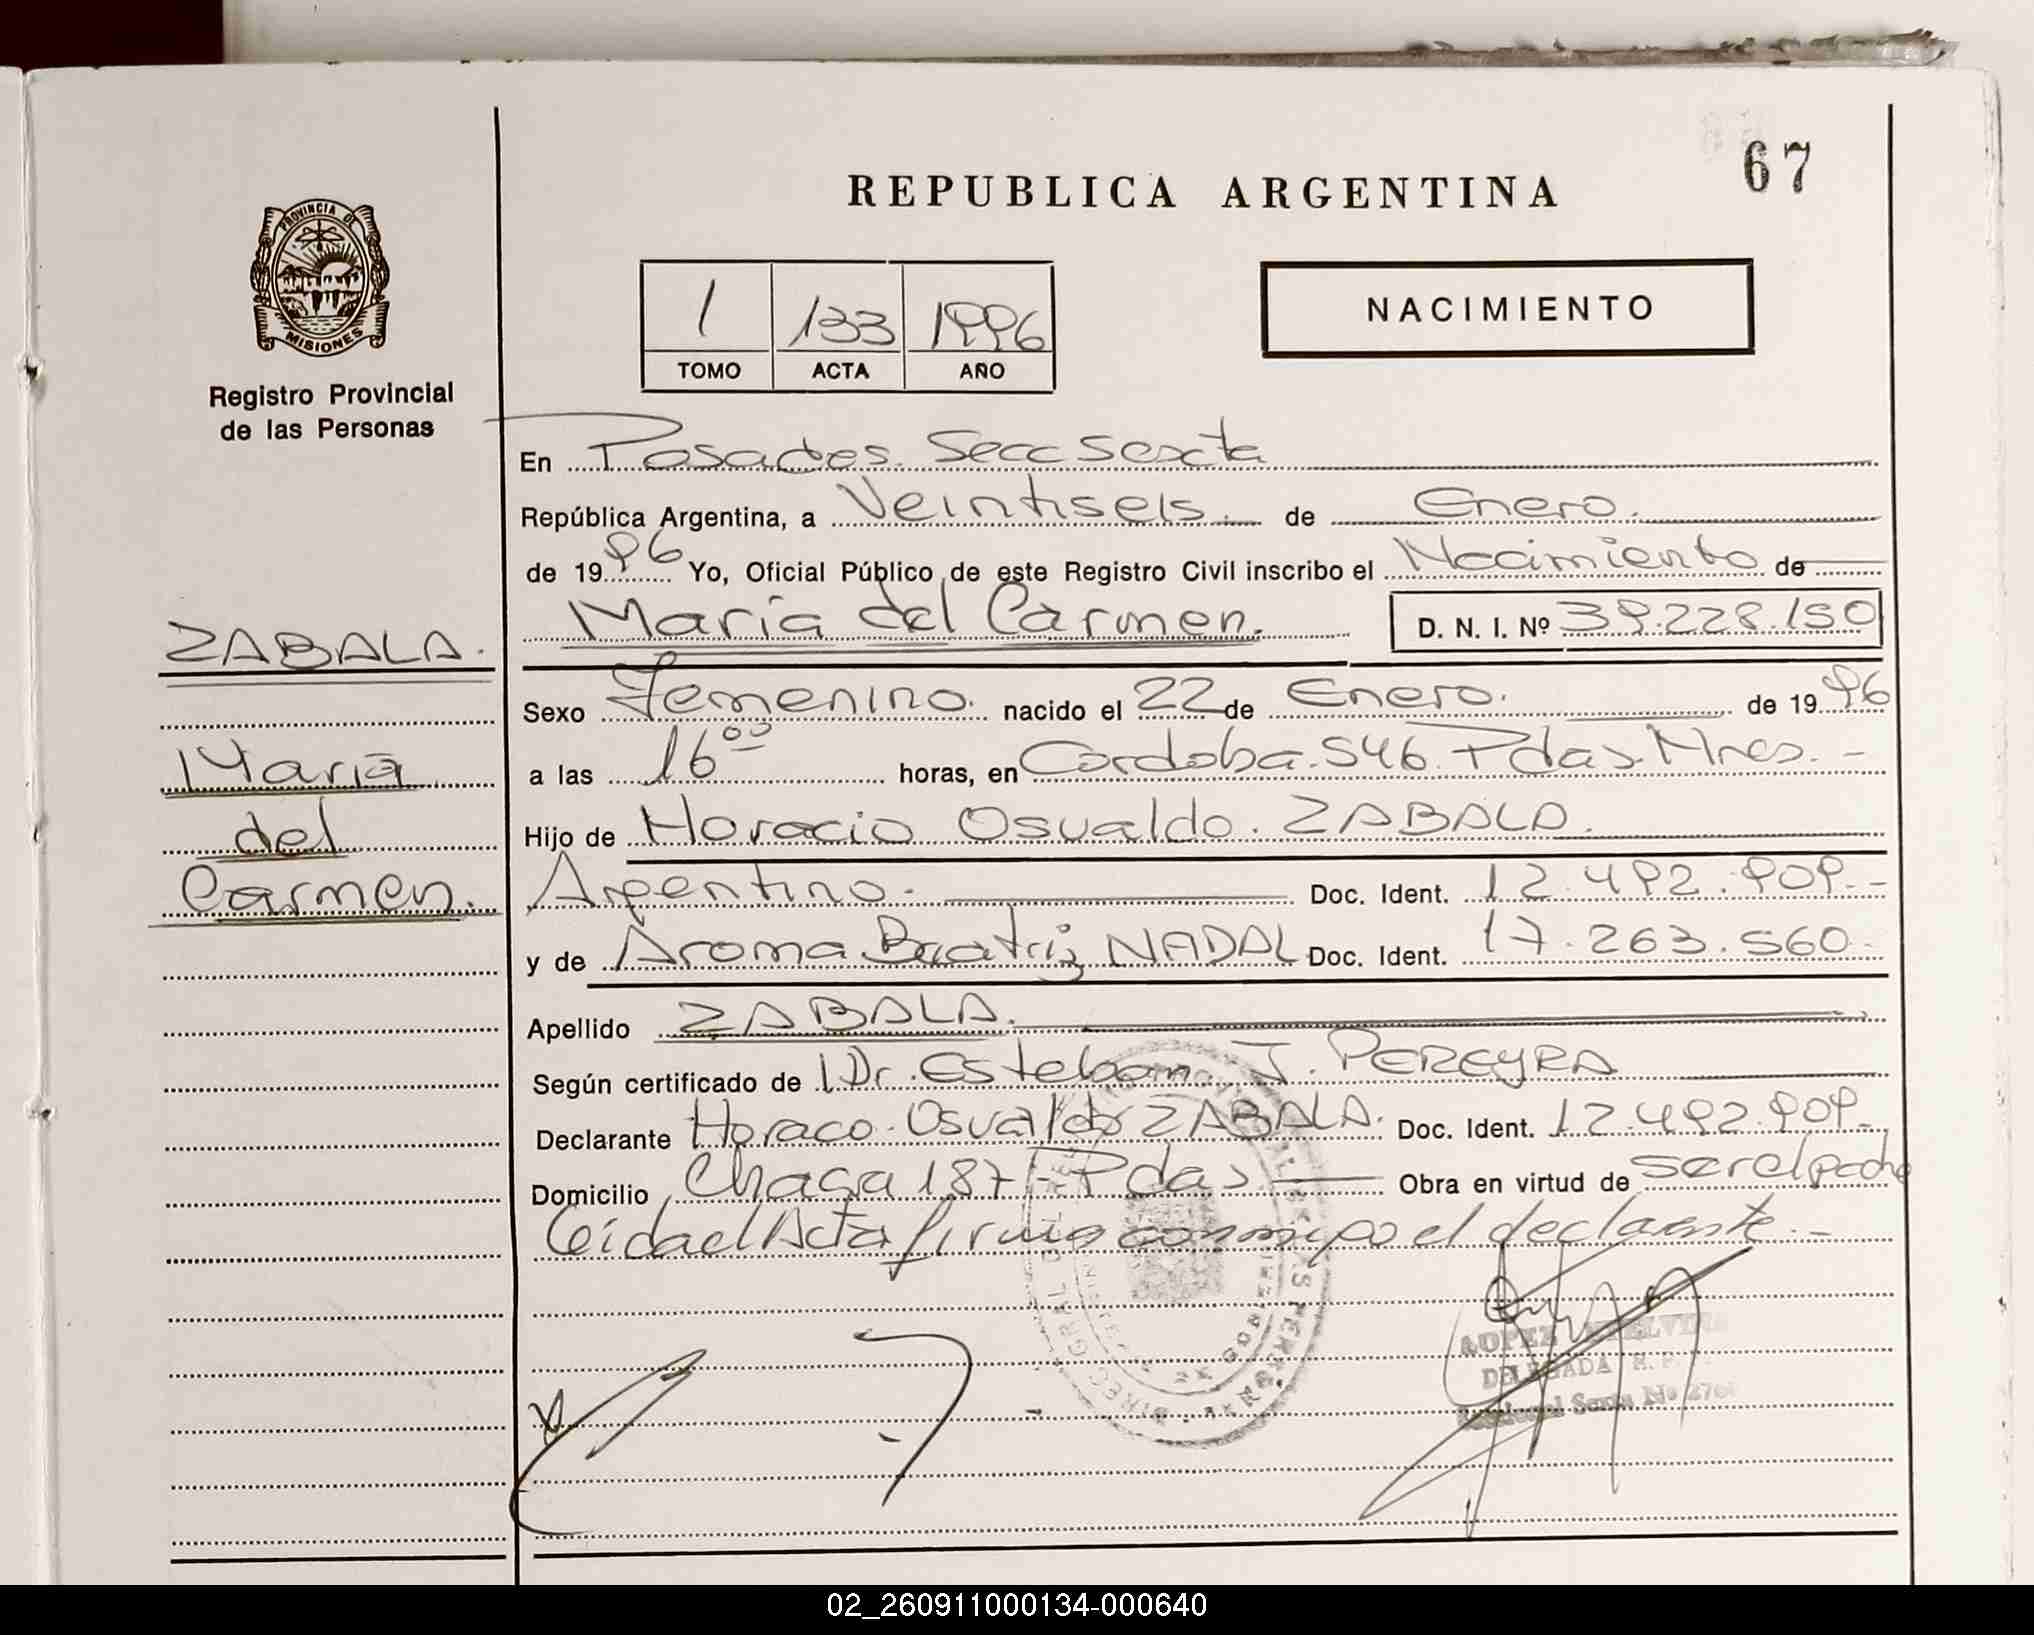 67
REPUBLICA ARGENTINA
PROVINCIA DE MISIONES
Registro Provincial
de las Personas
1 133 1996
TOMO ACTA AÑO
NACIMIENTO
En Posadas. Secc Sexta
República Argentina, a Veintiseis de Enero.
de 1996 Yo, Oficial Público de este Registro Civil inscribo el Nacimiento de
María del Carmen. D. N. I. Nº 39.228.150
ZABALA.
María
del
Carmen.
Sexo Femenino. nacido el 22 de Enero. de 1996
a las 16 00 horas, en Cordoba. 546. Pdas Mnes. -
Hijo de Horacio Osvaldo. ZABALA.
Argentino. Doc. Ident. 12.492.909.-
y de Aroma Beatriz NADAL Doc. Ident. 17.263.560.
Apellido ZABALA.
Según certificado de Dr. Esteban J. PEREYRA
Declarante Horaco. Osvaldo ZABALA. Doc. Ident. 12.492.909.
Domicilio 187 - Pdas Obra en virtud de ser el padre
Leida el Acta firma conmigo el declarante. -
DELEGADA
Sexta Nº
02_260911000134-000640